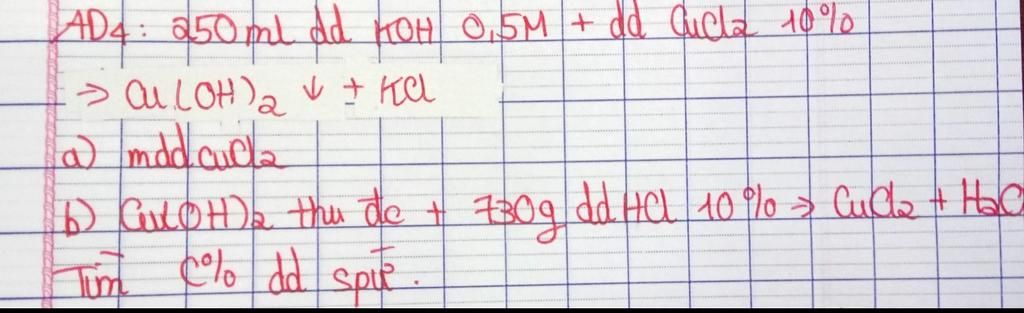 AD4: 250ml dd KOH 0,5M + dd CuCl2 10%
⇒ Cu(OH)2 ↓ + KCl
a) mdd CuCl2
b) Cu(OH)2 thu đc + 730g dd HCl 10% ⇒ CuCl2 + H2O
Tìm C% dd spứ.